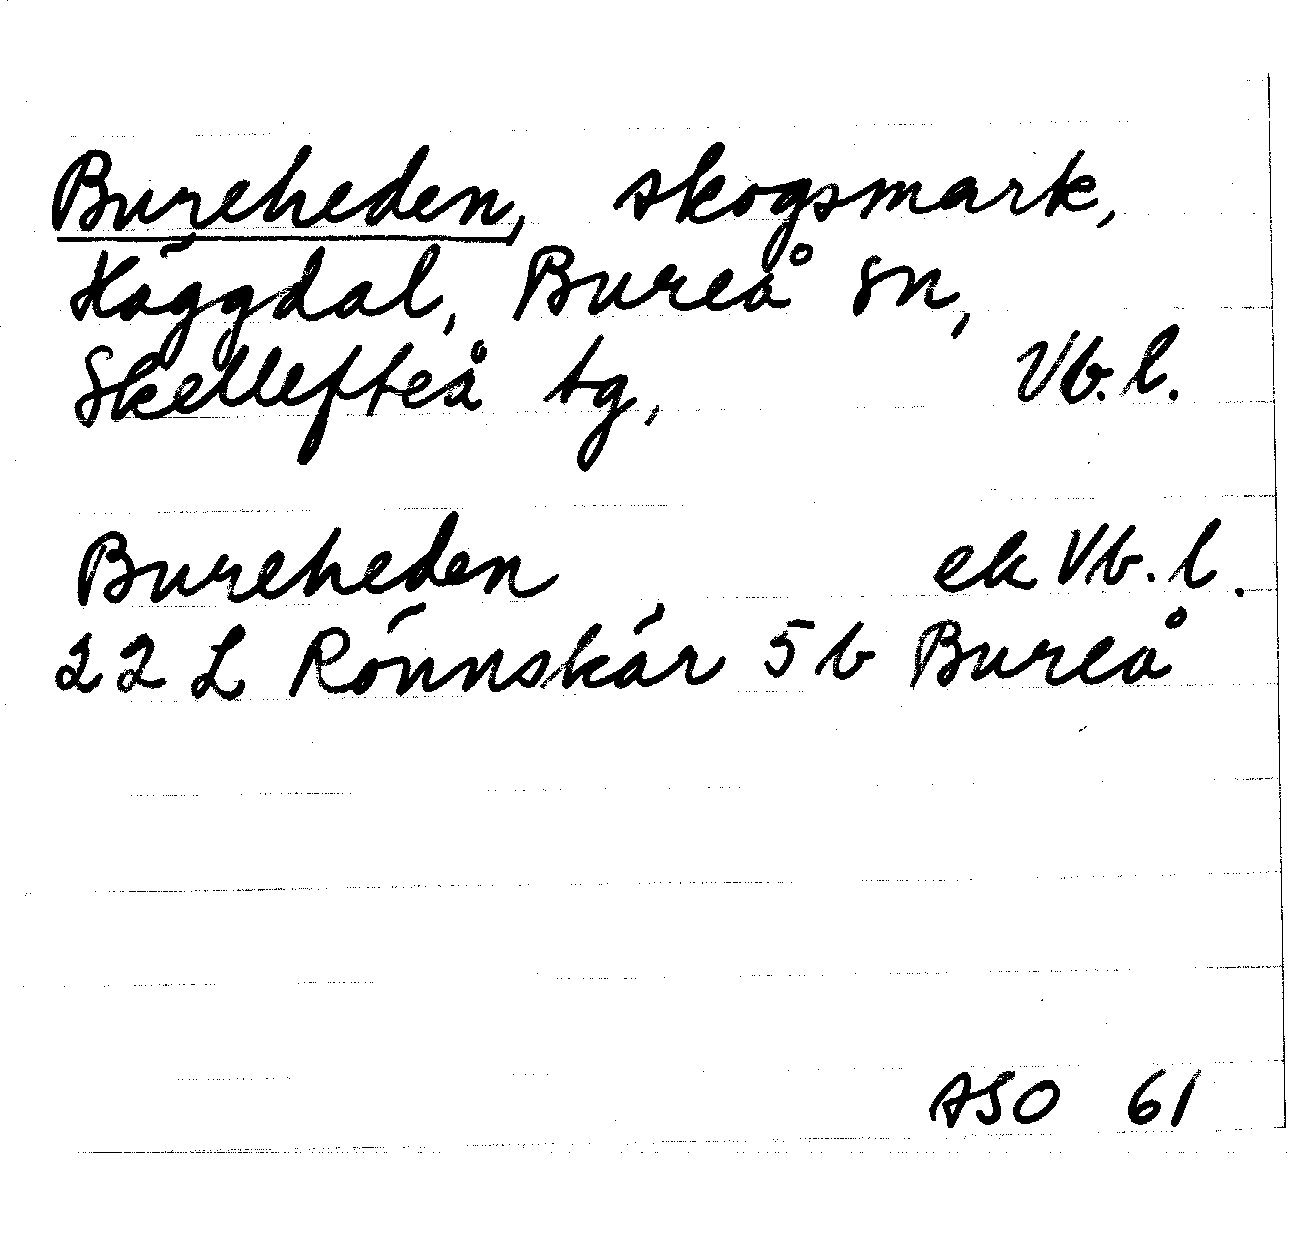 Bureheden, skogsmark,
Häggdal, Bureå sn,
Skellefteå tg, Vb. l.
Bureheden ek Vb. l.
22 L Rönnskär 5 b Bureå
ASO 61